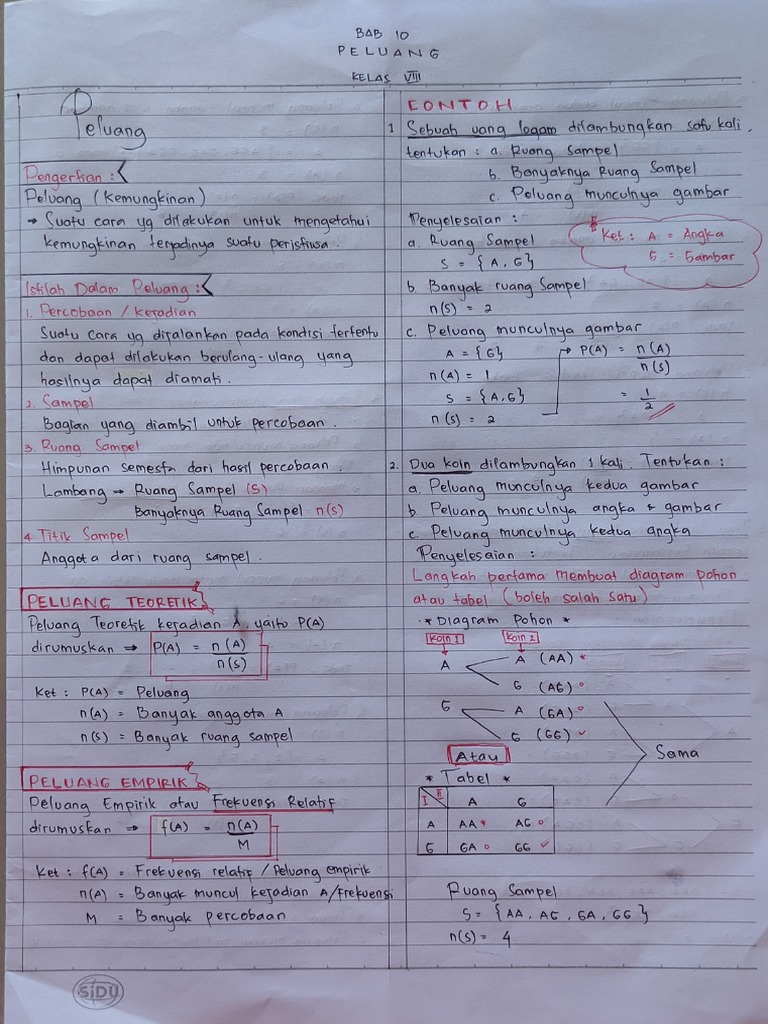 BAB 10
PELUANG
KELAS VIII
Peluang
Pengertian :
Peluang (Kemungkinan)
→ Suatu cara yg dilakukan untuk mengetahui
kemungkinan terjadinya suatu peristiwa.
Istilah Dalam Peluang :
1. Percobaan / Kejadian
Suatu cara yg dijalankan pada kondisi tertentu
dan dapat dilakukan berulang-ulang yang
hasilnya dapat diamati.
2. Sampel
Bagian yang diambil untuk percobaan.
3. Ruang Sampel
Himpunan semesta dari hasil percobaan.
Lambang → Ruang Sampel (S)
Banyaknya Ruang Sampel n(S)
4. Titik Sampel
Anggota dari ruang sampel.
PELUANG TEORETIK
Peluang Teoretik kejadian A, yaitu P(A)
dirumuskan ⇒ P(A) = n(A)
n(S)
Ket : P(A) = Peluang
n(A) = Banyak anggota A
n(S) = Banyak ruang sampel
PELUANG EMPIRIK
Peluang Empirik atau Frekuensi Relatif
dirumuskan ⇒ f(A) = n(A)
M
Ket : f(A) = Frekuensi relatif / Peluang empirik
n(A) = Banyak muncul kejadian A/frekuensi
M = Banyak percobaan
CONTOH
1 Sebuah uang logam dilambungkan satu kali,
tentukan : a. Ruang Sampel
b. Banyaknya Ruang Sampel
c. Peluang munculnya gambar
Penyelesaian :
a. Ruang Sampel
S = {A, G}
* Ket : A = Angka
G = Gambar
b. Banyak ruang Sampel
n(S) = 2
c. Peluang munculnya gambar
A = {G}
n(A) = 1
S = {A,G}
n(S) = 2
→ P(A) = n(A)
n(S)
= 1
2
2. Dua koin dilambungkan 1 kali. Tentukan :
a. Peluang munculnya kedua gambar
b. Peluang munculnya angka & gambar
c. Peluang munculnya kedua angka
Penyelesaian :
Langkah pertama membuat diagram pohon
atau tabel (boleh salah satu)
* Diagram Pohon *
Koin 1 Koin 2
A A (AA) *
G (AG) o
G A (GA) o
G (GG) ✓
Atau
Sama
* Tabel *
I II A G
A AA * AG o
G GA o GG ✓
Ruang Sampel
S = {AA, AG, GA, GG}
n(S) = 4
SiDU